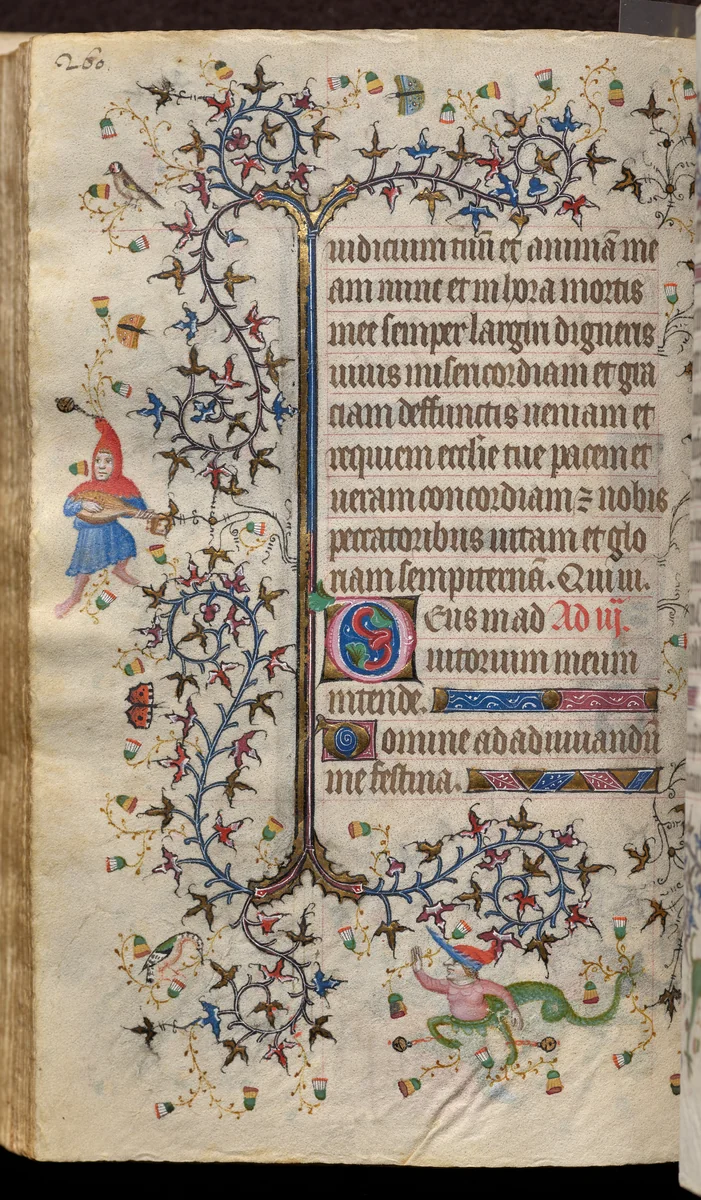 260.
iudicium tuū et animā me
am nunc et in hora mortis
mee semper largiri digneris
uiuis misericordiam et gra
ciam deffunctis ueniam et
requiem eccl'ie tue pacem et
ueram concordiam ⁊ nobis
peccatoribus uitam et glo
riam sempiternā. Qui ui.
Deus in ad Ad iij.
iutorium meum
intende.
Domine ad adiuuandū
me festina.